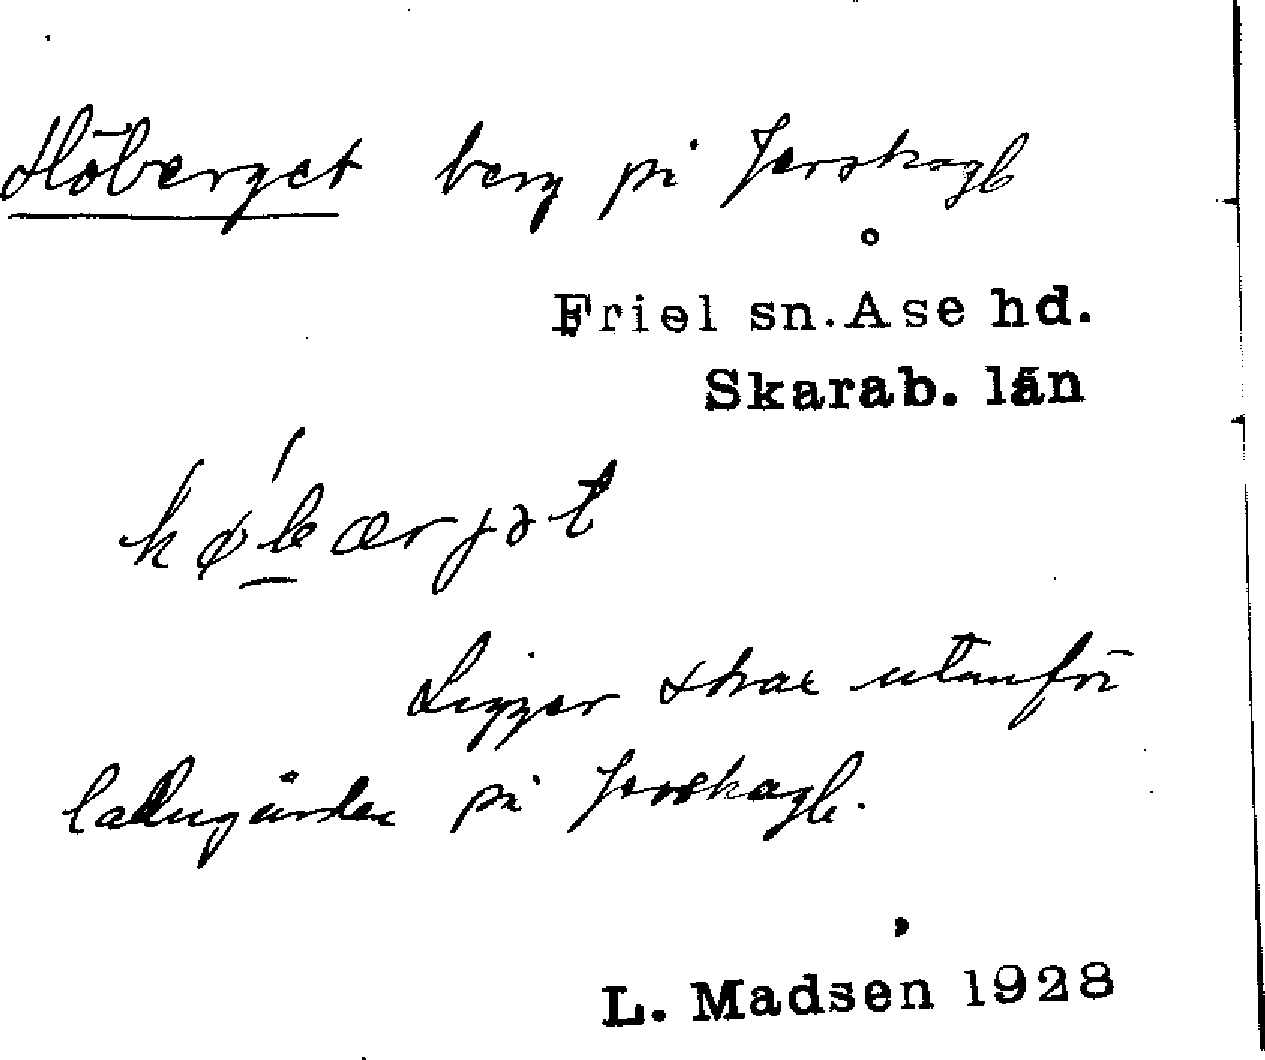 Höberget berg på Forskagb
Friel sn. Åse hd.
Skarab. län
høbærjət
Ligger strax utanför
ladugården på Forskagb.
L. Madsen 1928